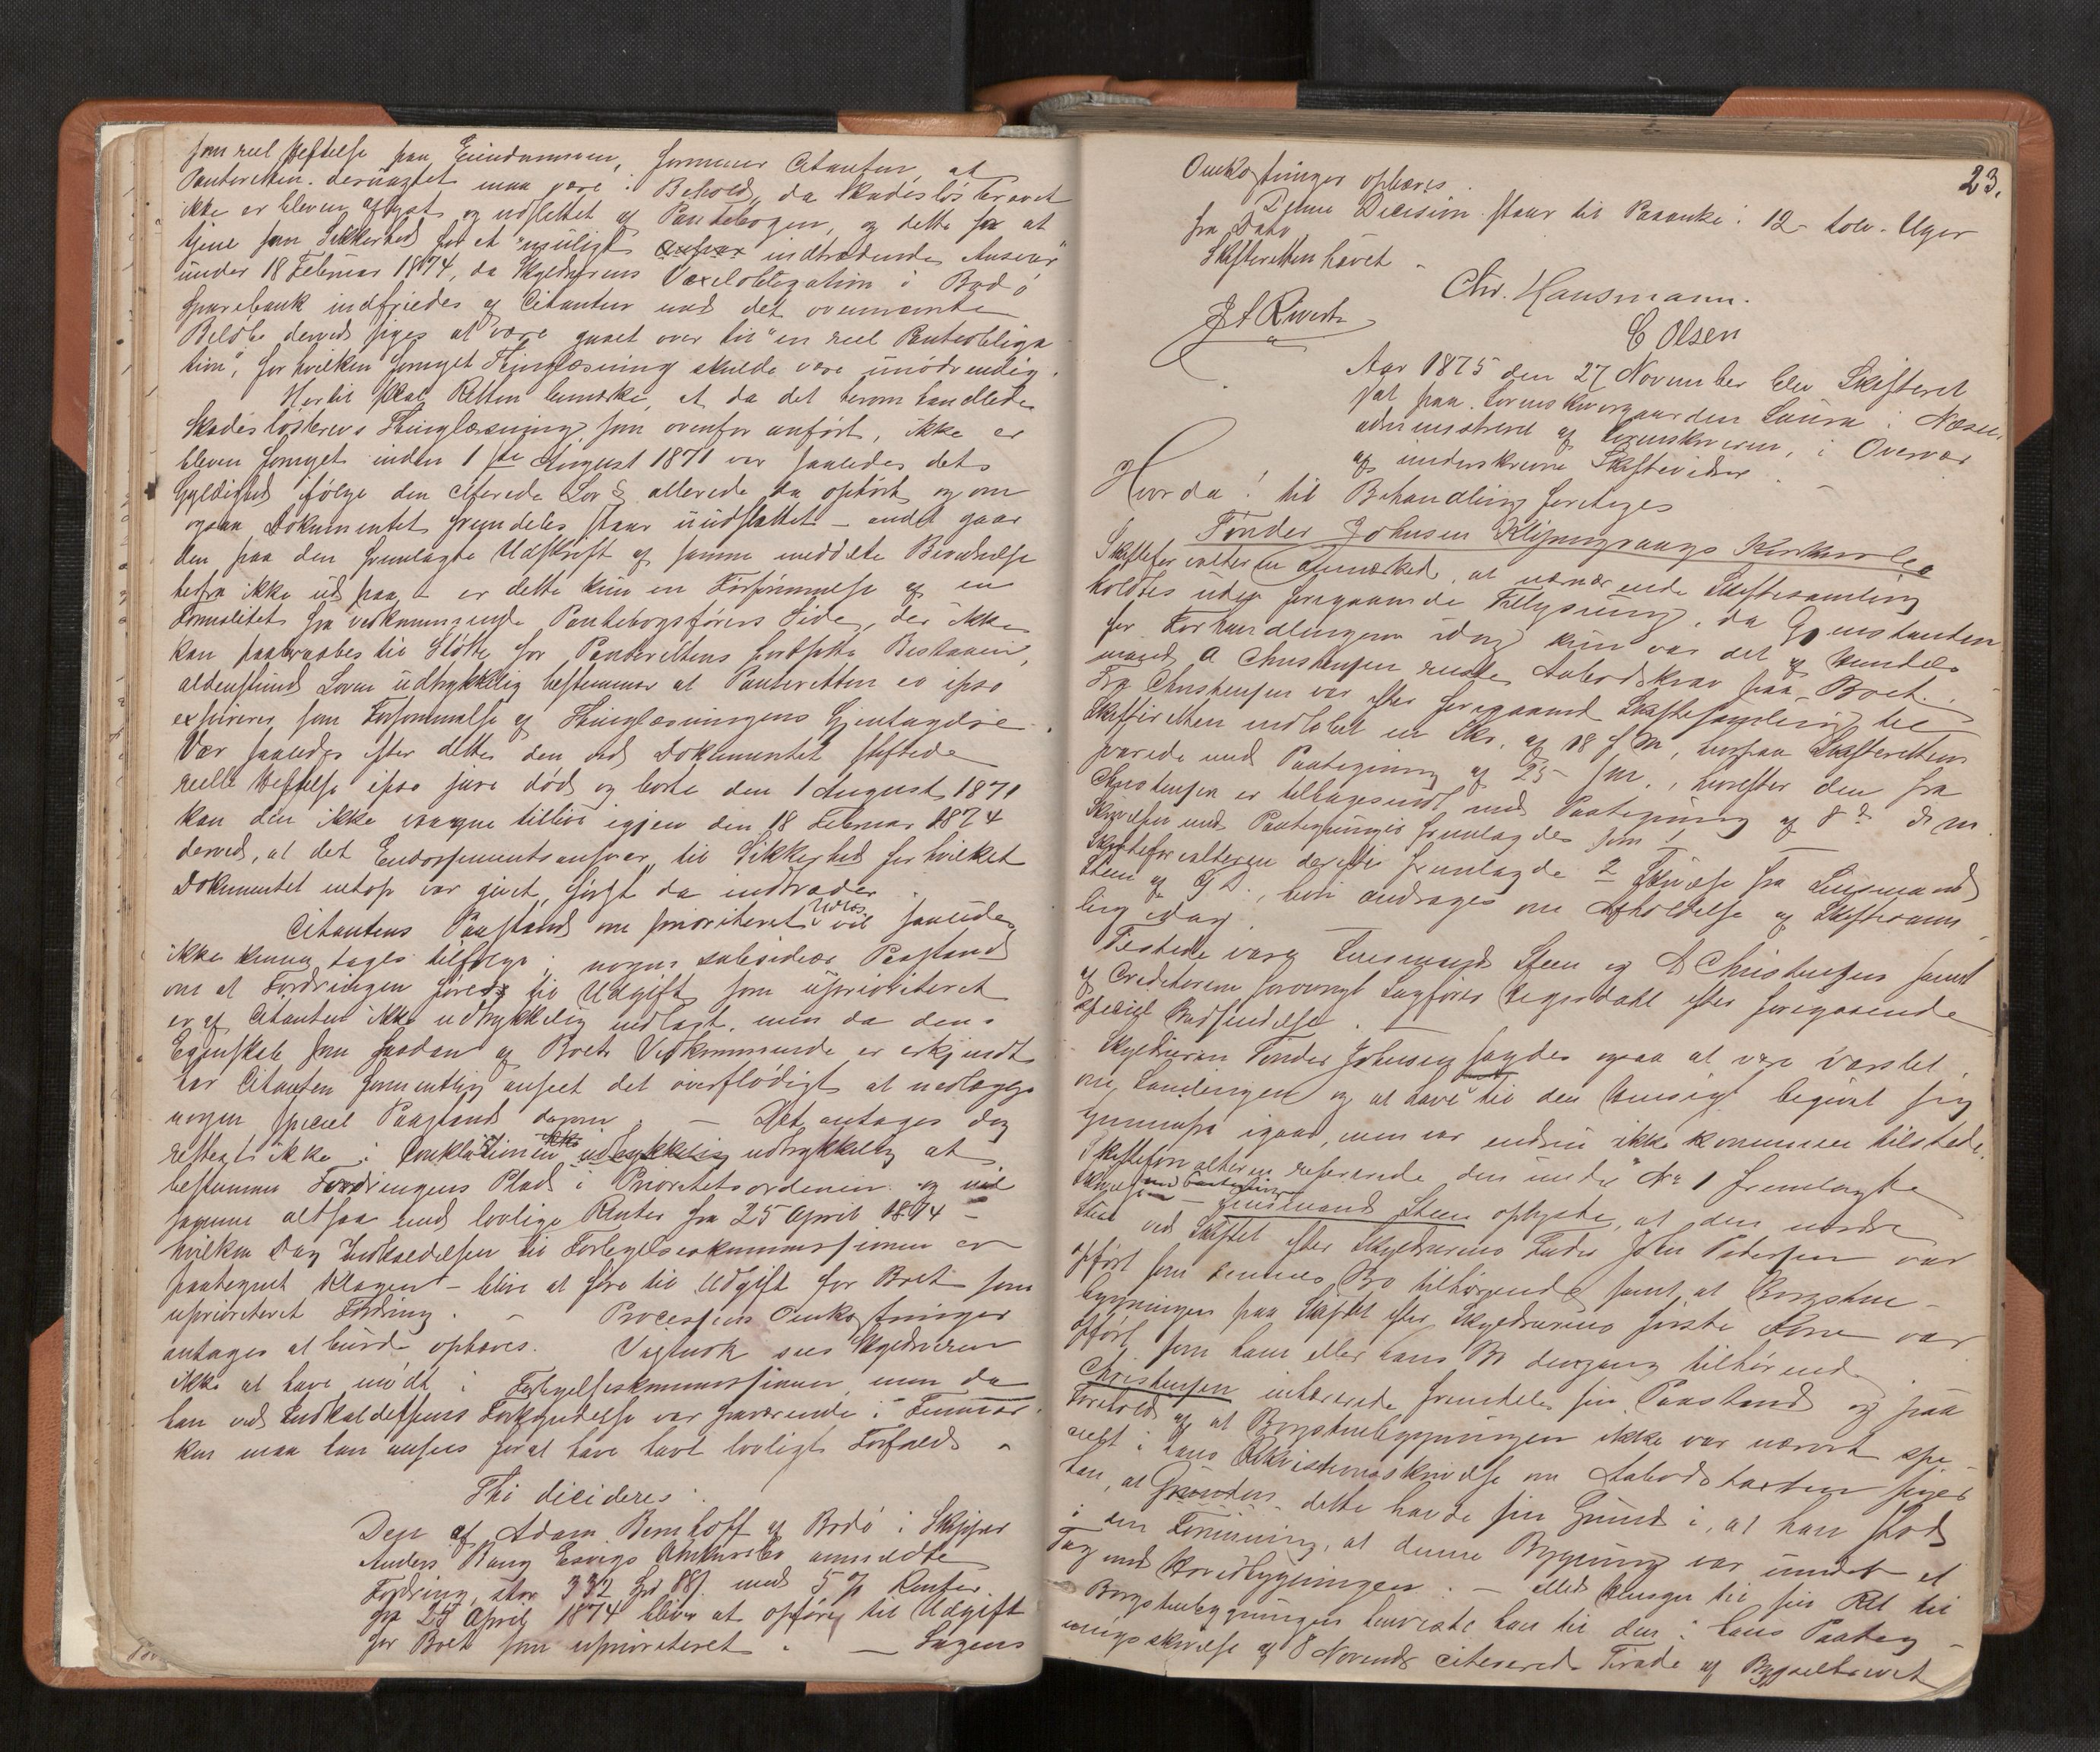 som reel Heftelse paa Eiendommen, formener Citanten, at
Panteretten desuagtet maa være i Behold, da Skadesløsbrevet
ikke er bleven aflyst og udslettet af Pantebogen, og dette for at
tjene som Sikkerhed for et "muligt indtrædende Ansvar"
under 18 Februar 1874, da Skyldnerens Vexelobligation i Bodø
Sparebank indfriedes af Citanten med det ovennævnte
Beløb derved siges at være gaaet over til "en reel Panteobliga
tion", for hvilken fornyet Thinglæsning skulde være unødvendig.
Hertil skal Retten bemærke, at da det heromhandlede
Skadesløsbrevs Thinglæsning, som ovenfor anført, ikke er
bleven fornyet inden 1ste August 1871 var saaledes dets
Gyldighed ifølge den citerede Lov § allerede da ophørt og om
ogsaa Dokumentet fremdeles staar uudslettet - andet gaar
den paa den fremlagte Udskrift af samme meddelte Bevidnelse
herfra ikke ud paa - er dette kun en Forsømmelse af en
Formalitet fra vedkommende Pantebogsførers Side, der ikke
kan paaberaabes til Støtte for Panterettens fortsatte Bestaaen,
aldenstund Loven udtrykkelig bestemmer at Panteretten eo ipso
exspirerer som Forsømmelse af Thinglæsningens Gjentagelse.
Var saaledes efter dette den ved Dokumentet stiftede
reelle Heftelse ipso jure død og borte den 1 August 1871
kan den ikke vaagne tillive igjen den 18 Februar 1874
derved, at det Endorsementsansvar, til Sikkerhed for hvilket
Dokumentet netop var givet, først da indtræder.
Citantens Paastand om prioriteret Udlæg vil saaledes
ikke kunne tages tilfølge; nogen subsidiær Paastand
om at Fordringen føres til Udgift som uprioriteret
er af Citanten ikke udtrykkelig nedlagt, men da dens
Egenskab som saadan af Boets Vedkommende er erkjendt
har Citanten formentlig anseet det overflødigt at nedlægge
nogen speciel Paastand derom. - Det antages dog
rettest ikke i Conklusionen udtrykkelig at
bestemme Fordringens Plads i Prioritetsordenen og vil
samme altsaa med lovlige Renter fra 25 April 1874 -
hvilken Dag Indkaldelsen til Forligelseskommissionen er
paategnet Klagen - blive at føre til Udgift for Boet som
uprioriteret Fordring. - Processens Omkostninger
antages at burde ophæves. Vistnok sees Skyldneren
ikke at have mødt i Forligelseskommissionen, men da
han ved Indkaldelsens Forkyndelse var fraværende i Finmar-
ken maa han ansees for at have havt lovligt Forfald.
Thi decideres:
Den af Adam Bernhoff af Bodø i Skipper
Anders Bang Esvigs Konkursbo anmeldte
Fordring, stor 332 Spd 88 s. med 5 % Renter
fra 25 April 1874 bliver at opføre til Udgift
for Boet som uprioriteret. - Sagens
23.
Omkostninger ophæves.
Denne Decision staar til Paaanke i 12 - tolv - Uger
fra Dato
Skifteretten hævet -
Chr. Hausmann.
C Olsen
Aar 1875 den 27 November blev Skifteret
sat paa Sorenskrivergaarden Laura i Næsne
administreret af Sorenskriveren, i Overvær
af underskrevne Skiftevidner. -
Hvor da! til Behandling foretoges
Tønder Johnsen Konkursbo
Skifteforvalteren bemærkede, at nærværende Skiftesamling
holdtes uden foregaaende Tillysning, da Gjenstanden
for Forhandlingerne idag kun var det af Handels
mand A Christensen reiste Aabodskrav paa Boet.
Fra Christensen var efter foregaaende Skiftesamling til
Skifteretten indløbet en Skr. af 18 f. M., hvorpaa Skifteretten
svarede med Paategning af 25 f.M., hvorefter den fra
Christensen er tilbagesendt med Paategning af 8de d M.
Skrivelsen med Paategninger fremlagdes som 1
Skifteforvalteren derefter fremlagde 2 Skrivelse fra Lensmand
Steen af G. D., hvori andrages om Afholdelse af Skiftesam
ling idag.
Tilstede vare Lensmand Steen og A Christensen samt
af Creditorerne forøvrigt Sagfører efter foregaaende
speciel Budsendelse. -
Skyldneren Tønder Johnsen sagdes ogsaa at være varslet
om Samlingen og at have til den Hensigt begivet sig
hjemmefra igaar, men var endnu ikke kommen tilstede.
Skifteforvalteren refererede den under No 1 fremlagte
Skrivelse med Paategninger
- Lensmand Steen oplyste, at den nordre
Stue ved Skiftet efter Skyldnerens Fader John Pedersen var
opført som dennes Bo tilhørende samt at Borgstue-
bygningen paa Skiftet efter Skyldnerens første Kone var
opført som ham eller hans Bo dengang tilhørende
Christensen inhærerede fremdeles sin Paastand og paa
Forehold af at Borgstuebygningen ikke var nævnt spe-
cielt i hans Rekvisitionsskrivelse om Aabodstaxten siger
han, at Grunden dette havde sin Grund i, at han stod
i den Formening, at denne Bygning var under et
Tag med Hovedbygningen. - Med Hensyn til sin Ret til
Borgstuebygningen henviste han til den i hans Paateg-
ningsskrivelse af 8 Novembr citerede Tirade af Bygselbrevet